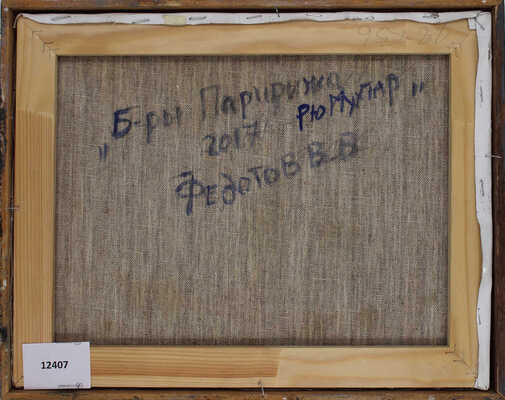 „Б-ры Паририжа
РЮ МУПАР"
2017
ФЕДОТОВ В.В.
12407